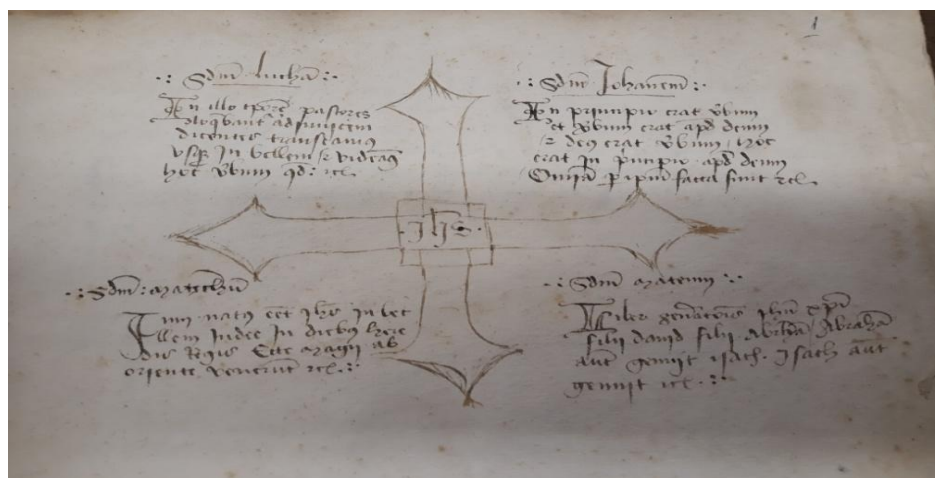 1
.: Sdm̄ Luchā :.
In illo tp̄ore pastores
loq̄bant᷑ ad jnuicem
dicentes transeamus
vsq̨ In betleem ⁊ videam᷒
hoc v̄bum qd̄ : ⁊cet.
.: Sdm̄ Johanem̄ :.
In principio erat v̄bum
et v̄bum erat apd̄ deum
⁊ deus erat v̄bum , hoc
erat In p̄ncipio apd̄ deum
Omīa p̄ ipm̄ facta sunt ⁊cet.
. Jhs .
.: Sdm̄ : Matheū
Cum natus eēt Jhs̄ In bet
lleem Iudee In diebus here
dis Regis Ecce magii ab
oriente venerūt ⁊cet. :.
.: Sdm̄ mateum :.
Liber gen̄atōnis Jhū xp̄i
filij dauid filij Abrhā Abrahā
aūt genuit isach . Isach aūt
genuit ⁊cet. :.